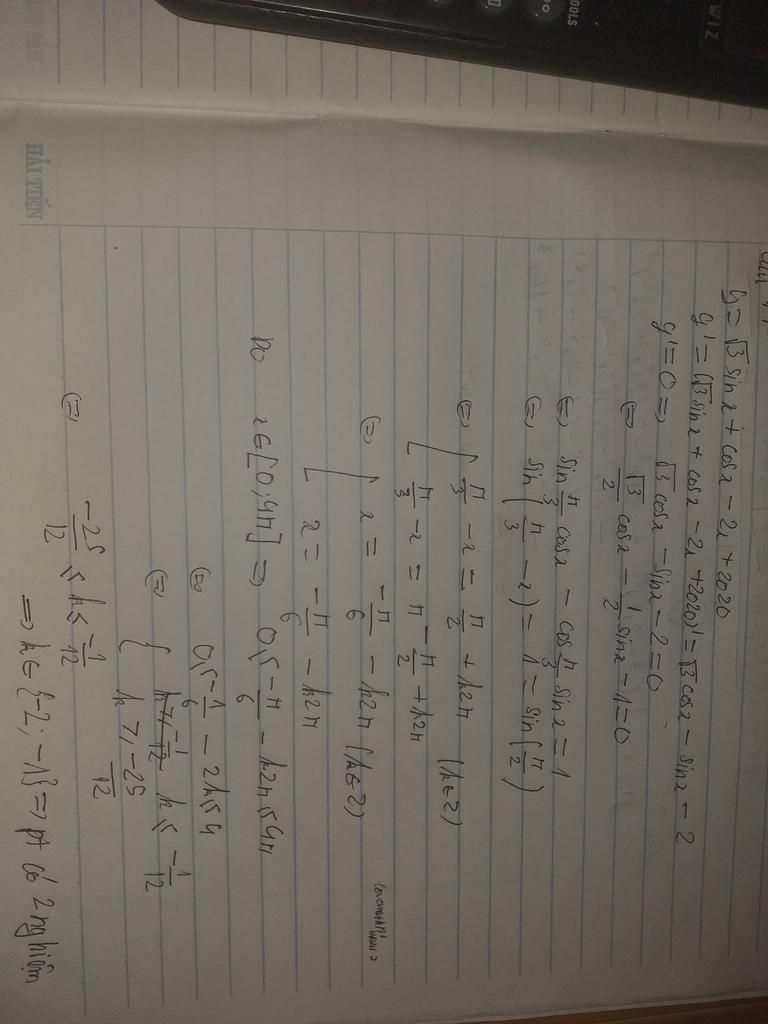 WIZ
OOLS
HẢI TIẾN
y = √3 sin x + cos x - 2x + 2020
y' = (√3 sin x + cos x - 2x + 2020)' = √3 cos x - sin x - 2
y' = 0 => √3 cos x - sin x - 2 = 0
(=) √3/2 cos x - 1/2 sin x - 1 = 0
(=) sin π/3 cos x - cos π/3 sin x = 1
(=) sin (π/3 - x) = 1 = sin (π/2)
(=) [ π/3 - x = π/2 + k2π
[ π/3 - x = π - π/2 + k2π (k ∈ Z)
(=) [ x = -π/6 - k2π (k ∈ Z)
[ x = -π/6 - k2π
Do x ∈ [0; 4π] => 0 ≤ -π/6 - k2π ≤ 4π
(=) 0 ≤ -1/6 - 2k ≤ 4
(=) { k ≤ -1/12
{ k ≥ -25/12
(=) -25/12 ≤ k ≤ -1/12
=> k ∈ {-2; -1} => pt có 2 nghiệm